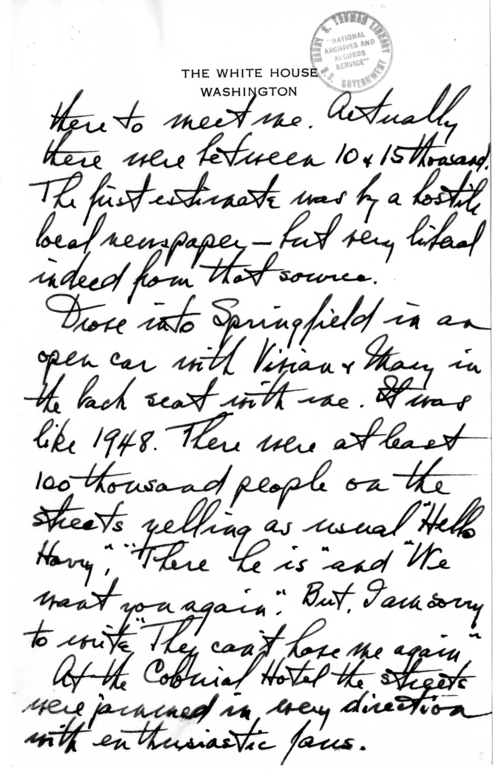 HARRY S. TRUMAN LIBRARY
"NATIONAL
ARCHIVES AND
RECORDS
SERVICE"
U.S. GOVERNMENT
THE WHITE HOUSE
WASHINGTON
there to meet me. Actually
there were between 10 & 15 thousand.
The first estimate was by a hostile
local newspaper – but very liberal
indeed from that source.
Drove into Springfield in an
open car with Vivian & Mary in
the back seat with me. It was
like 1948. There were at least
100 thousand people on the
streets yelling as usual "Hello
Harry", "There he is" and "We
want you again". But, I am sorry
to write "They can't have me again"
At the Colonial Hotel the streets
were jammed in every direction
with enthusiastic fans.